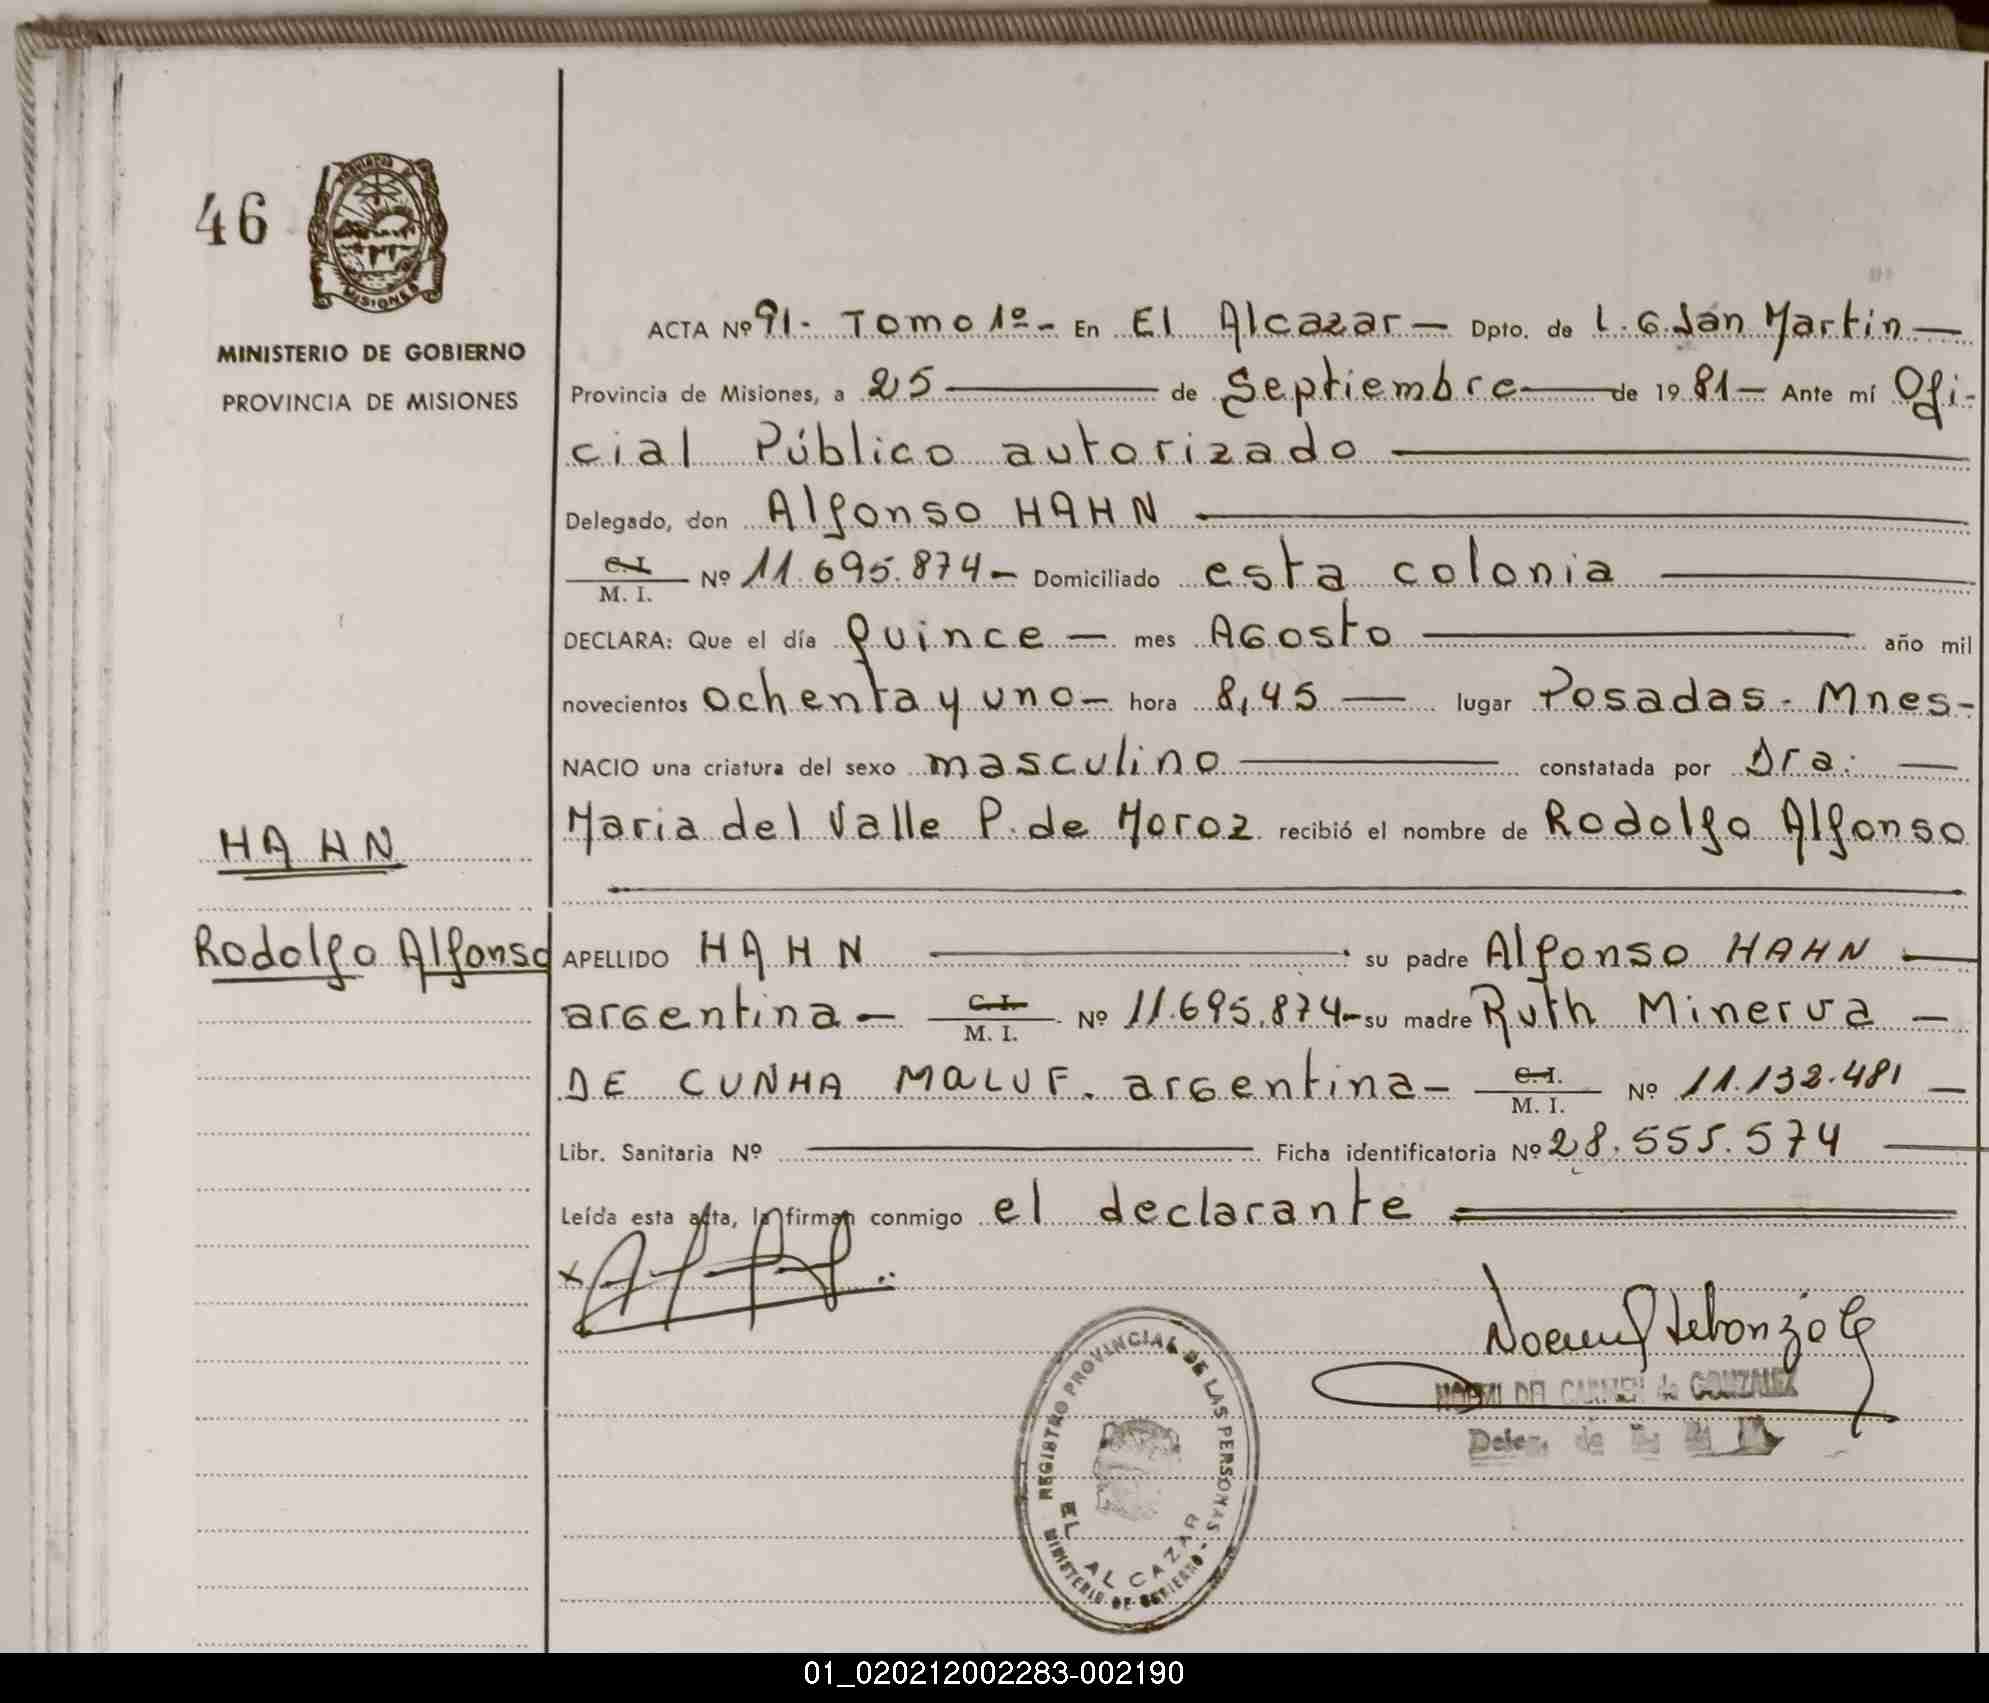 46
PROVINCIA DE
MISIONES
MINISTERIO DE GOBIERNO
PROVINCIA DE MISIONES
HAHN
Rodolfo Alfonso
ACTA Nº 91- Tomo 1º- En El Alcazar — Dpto. de L.G.San Martin —
Provincia de Misiones, a 25 — de Septiembre — de 1981 — Ante mí Ofi-
cial Público autorizado —
Delegado, don Alfonso HAHN —
C.I. / M. I. Nº 11.695.874 — Domiciliado esta colonia —
DECLARA: Que el día quince — mes Agosto — año mil
novecientos ochenta y uno — hora 8,45 — lugar Posadas - Mnes-
NACIO una criatura del sexo masculino — constatada por Dra: —
Maria del Valle P. de Moroz recibió el nombre de Rodolfo Alfonso
APELLIDO HAHN — su padre Alfonso HAHN —
argentina — C.I. / M. I. Nº 11.695.874- su madre Ruth Minerva —
DE CUNHA MALUF. argentina — C.I. / M. I. Nº 11.132.481 —
Libr. Sanitaria Nº — Ficha identificatoria Nº 28.555.574 —
Leída esta acta, la firman conmigo el declarante
NOEMI DEL CARMEN de GONZALEZ
Deleg. de
REGISTRO PROVINCIAL DE LAS PERSONAS
EL ALCAZAR
MINISTERIO DE GOBIERNO
01_020212002283-002190